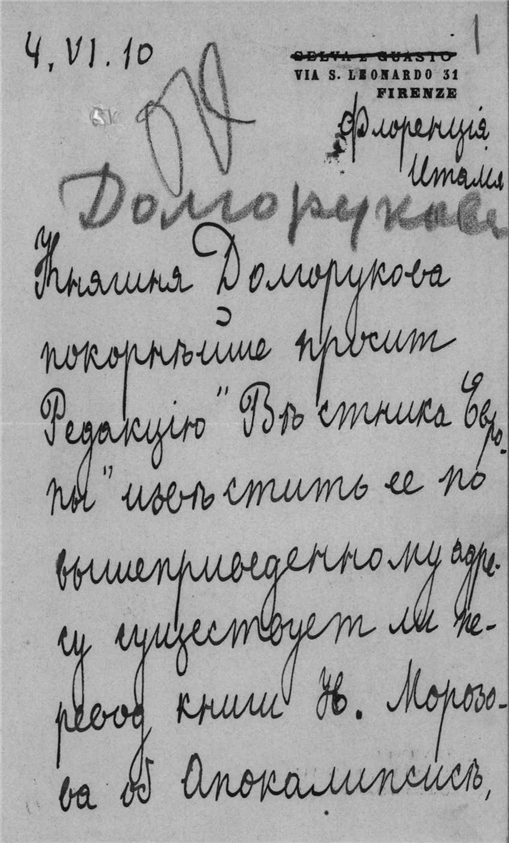 4, VI. 10
1
SELVA E GUASTO
VIA S. LEONARDO 31
FIRENZE
Флоренція
Италія
Долгорукова
Княгиня Долгорукова
покорнѣйше просит
Редакцію "Вѣстника Евро-
пы" извѣстить ее по
вышеприведенному адре-
су существует ли пе-
ревод книги Н. Морозо-
ва об Апокалипсисѣ,